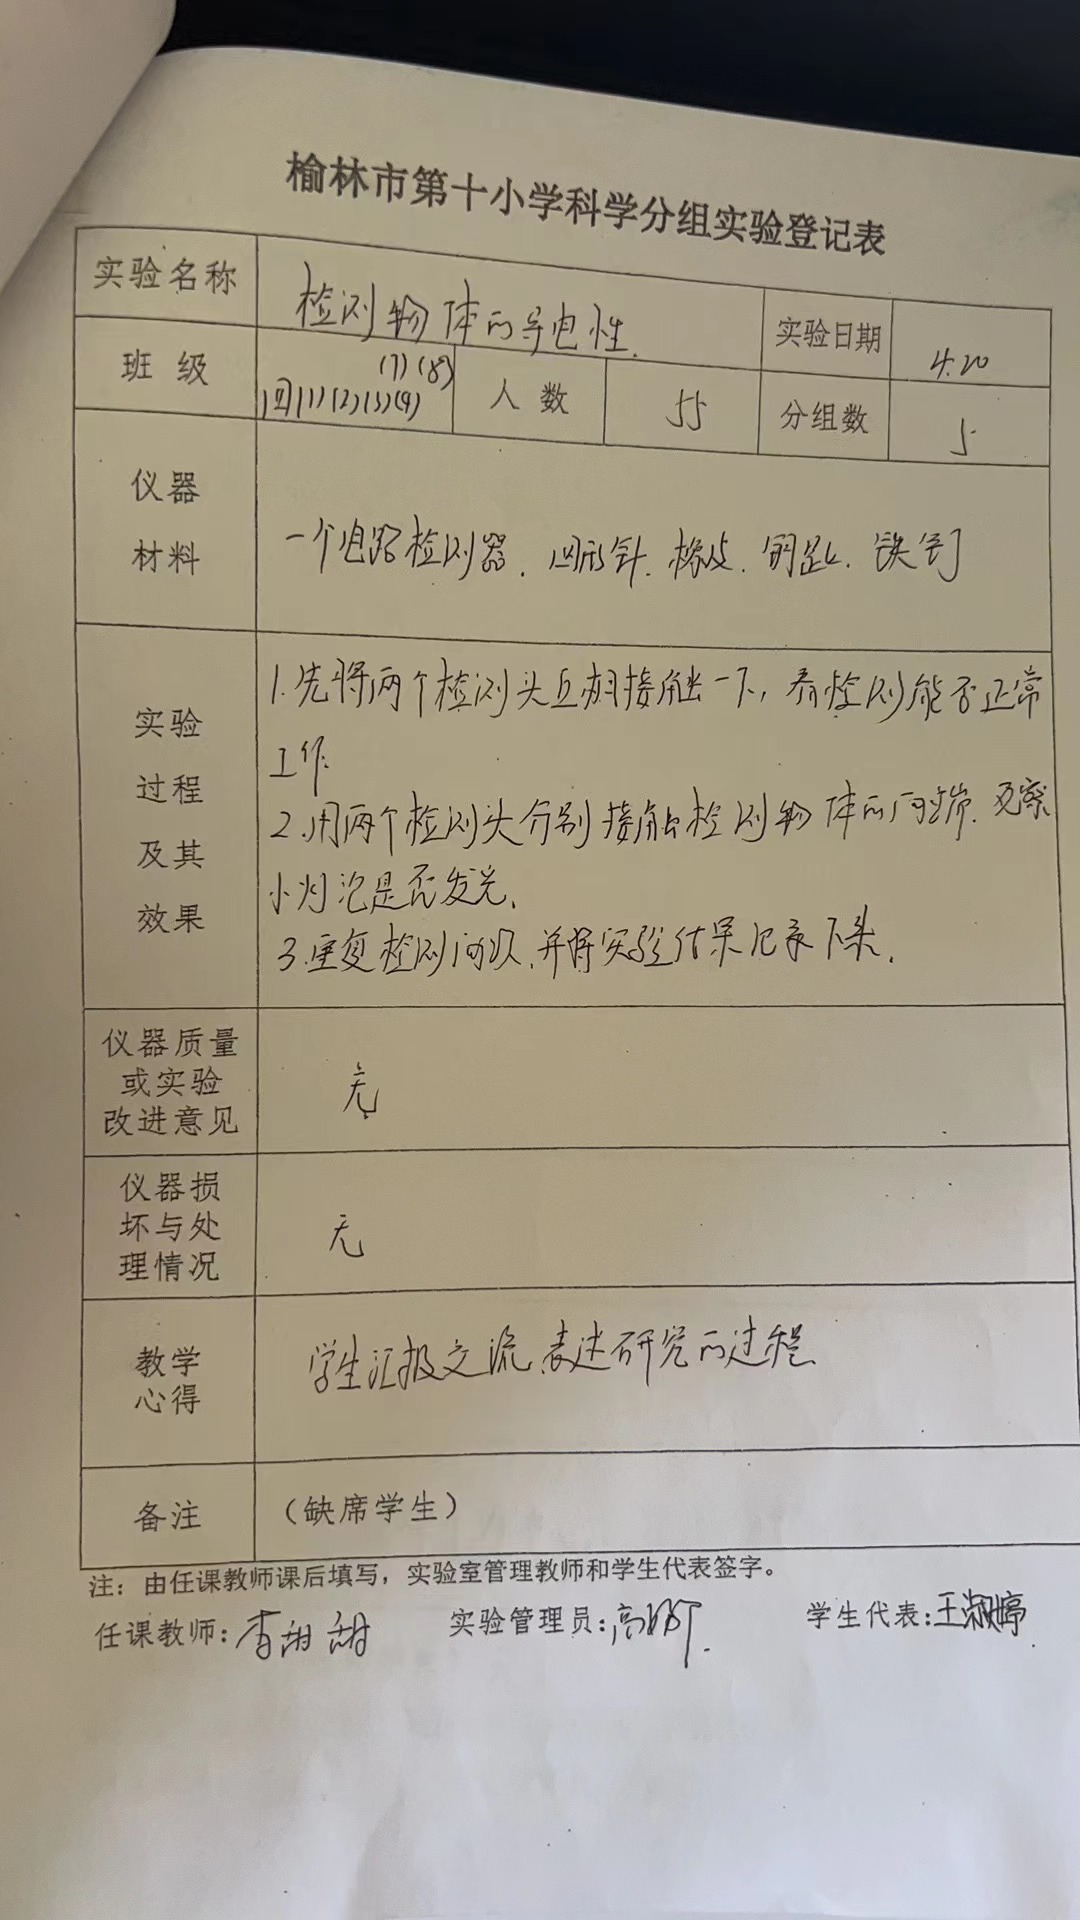 榆林市第十小学科学分组实验登记表
实验名称 检测物体的导电性. 实验日期 4.20
班级 (7)(8)
四(1)(2)(3)(4) 人数 55 分组数 5
仪器
材料
一个电路检测器、回形针、橡皮、钥匙、铁钉
实验
过程
及其
效果
1.先将两个检测头互相接触一下,看检测能否正常
工作.
2.用两个检测头分别接触检测物体的两端,观察
小灯泡是否发光.
3.重复检测 并将实验结果记录下来.
仪器质量
或实验
改进意见
无
仪器损
坏与处
理情况
无
教学
心得
学生汇报交流,表达研究的过程
备注 (缺席学生)
注:由任课教师课后填写,实验室管理教师和学生代表签字。
任课教师:李甜甜 实验管理员:高 学生代表:王淑婷